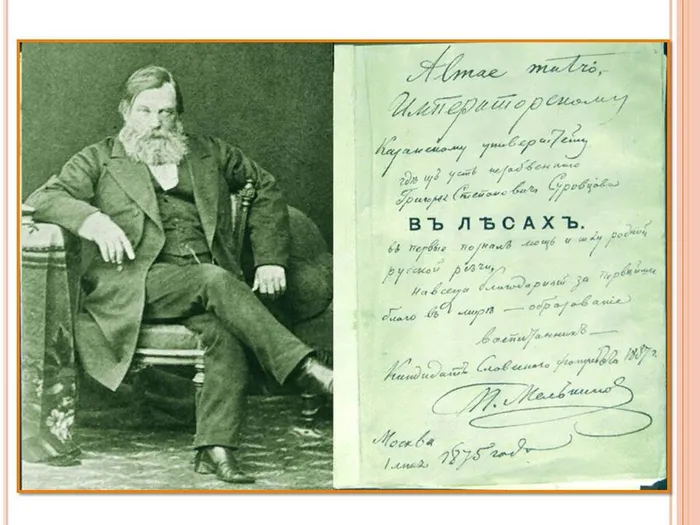 Almae matri,
Императорскому
Казанскому университету
гдѣ изъ устъ незабвеннаго
Григорія Степановича Суровцова
ВЪ ЛѢСАХЪ.
въ первые позналъ мощь и родной
русской рѣчи,
навсегда благодарный за первѣйшее
благо въ мирѣ — образованіе
воспитанникъ —
Кандидатъ Словеснаго факультета 1837 г.
П. Мельниковъ
Москва
1 1875 года